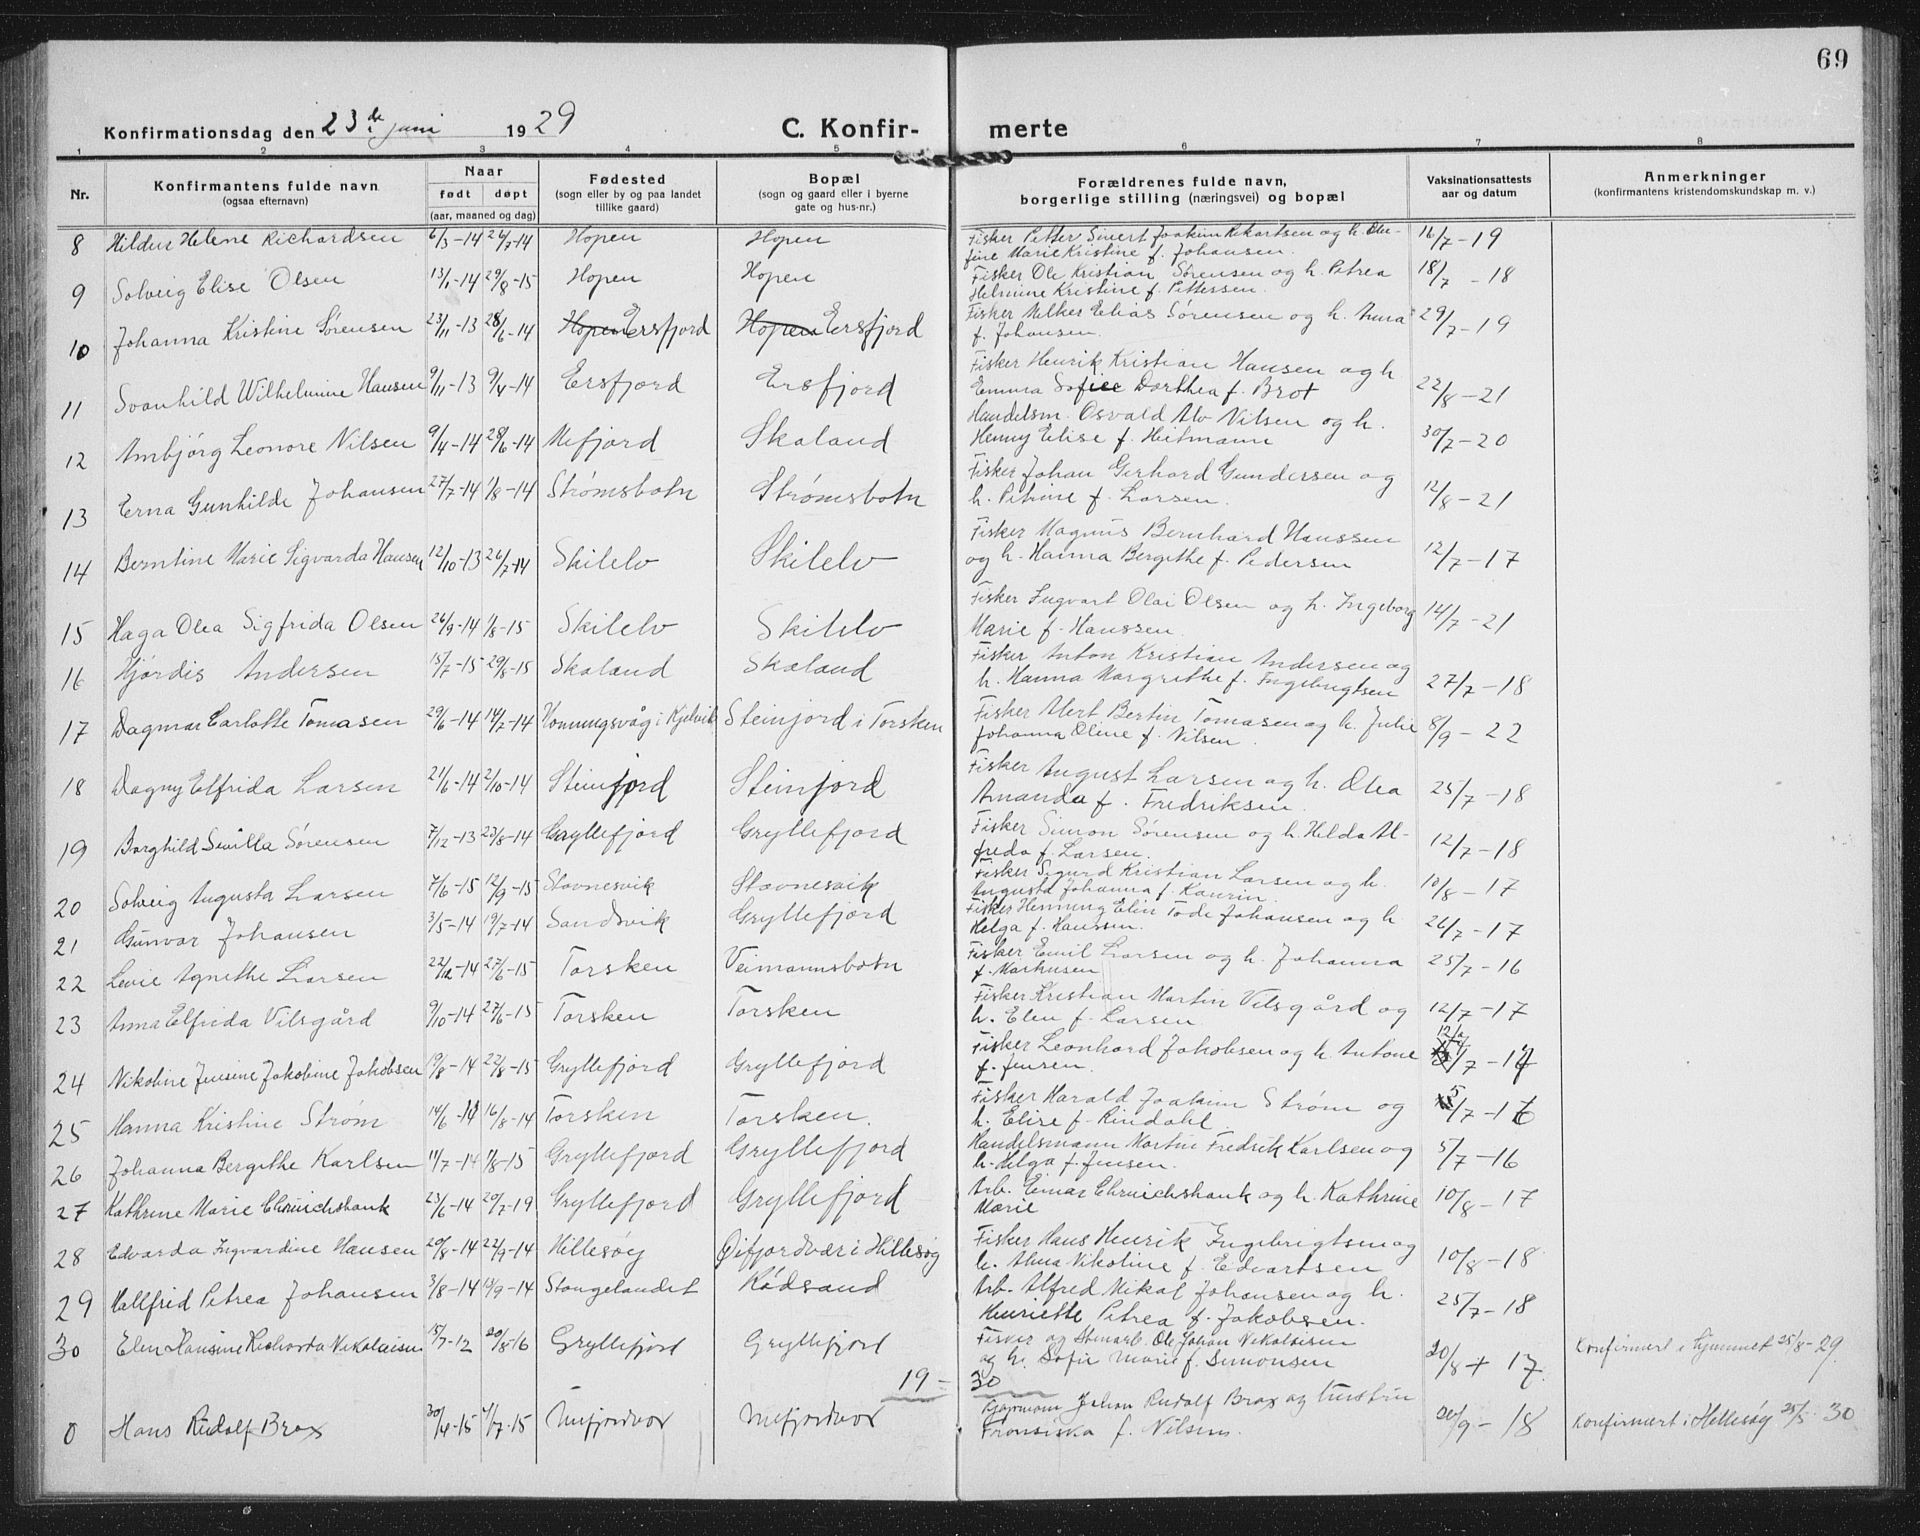 69
Konfirmationsdag den 23de juni 1929 C. Konfir- merte
1 2 3 4 5 6 7 8
Nr. Konfirmantens fulde navn (ogsaa efternavn) Naar født døpt (aar, maaned og dag) Fødested (sogn eller by og paa landet tillike gaard) Bopæl (sogn og gaard eller i byerne gate og hus-nr.) Forældrenes fulde navn, borgerlige stilling (næringsvei) og bopæl Vaksinationsattests aar og datum Anmerkninger (konfirmantens kristendomskundskap m. v.)
8 Hildur Helene Richardsen 6/3-14 26/7-14 Hopen Hopen Fisker Petter Sivert Joakim Rikartsen og h. Ole-
fine Marie Kristine f. Johansen. 16/7-19
9 Solveig Elise Olsen 13/1-14 29/8-15 Hopen Hopen Fisker Ole Kristian Sørensen og h. Petrea
Helmine Kristine f. Pettersen. 18/7-18
10 Johanna Kristine Sørensen 23/11-13 28/6-14 Hopen Ersfjord Hopen Ersfjord Fisker Melker Elias Sørensen og h. Anna
f. Johansen. 29/7-19
11 Svanhild Wilhelmine Hansen 9/11-13 9/4-14 Ersfjord Ersfjord Fisker Henrik Kristian Hansen og h.
Emma Sofie Dorthea f. Brot 22/8-21
12 Ambjørg Leonore Nilsen 9/4-14 28/6-14 Mefjord Skaland Handelsm. Osvald Alv Nilsen og h.
Henny Elise f. Heitmann 30/7-20
13 Erna Gunhilde Johansen 27/7-14 1/8-14 Strømsbotn Strømsbotn Fisker Johan Gerhard Gundersen og
h. Petrine f. Larsen. 12/8-21
14 Berntine Marie Sigvarda Hansen 12/10-13 26/7-14 Skilelv Skilelv Fisker Magnus Bernhard Hanssen
og h. Hanna Bergithe f. Pedersen 12/7-17
15 Haga Olea Sigfrida Olsen 26/9-14 1/8-15 Skilelv Skilelv Fisker Ingvart Olai Olsen og h. Ingeborg
Marie f. Hanssen. 14/7-21
16 Hjørdis Andersen 15/7-15 29/8-15 Skaland Skaland Fisker Anton Kristian Andersen og
h. Hanna Margrethe f. Ingebrigtsen 27/7-18
17 Dagmar Carlotte Tomasen 29/6-14 14/7-14 Honningsvåg i Kjelvik Steinfjord i Torsken Fisker Alert Bertin Tomasen og h. Julie
Johanna Oline f. Nilsen. 8/9-22
18 Dagny Elfrida Larsen 21/6-14 2/10-14 Steinfjord Steinfjord Fisker August Larsen og h. Olea
Amanda f. Fredriksen. 25/7-18
19 Borghild Sevilla Sørensen 7/12-13 23/8-14 Gryllefjord Gryllefjord Fisker Simon Sørensen og h. Hilda Al-
freda f. Larsen. 12/7-18
20 Solveig Augusta Larsen 7/6-15 12/9-15 Stovnesvik Stovnesvik Fisker Sigurd Kristian Larsen og h.
Augusta Johanna f. Kaurin. 10/8-17
21 Gunvor Johansen 3/5-14 19/7-14 Sandsvik Gryllefjord Fisker Henning Elin Tode Johansen og h.
Helga f. Hanssen. 26/7-17
22 Levie Agnethe Larsen 22/12-14 27/6-15 Torsken Veimannsbotn Fisker Emil Larsen og h. Johanna
f. Markusen 25/7-16
23 Anna Elfrida Vilsgård 9/10-14 27/6-15 Torsken Torsken Fisker Kristian Martin Vilsgård og
h. Elen f. Larsen. 12/7-17
24 Nikoline Jensine Jakobine Jakobsen 19/8-14 22/8-15 Gryllefjord Gryllefjord Fisker Leonhard Jakobsen og h. Antone
f. Jensen.
25 Hanna Kristine Strøm 14/6-14 16/8-14 Torsken Torsken. Fisker Harald Joakim Strøm og
h. Elise f. Rindahl. 5/7-16
26 Johanna Bergithe Karlsen 11/7-14 1/8-15 Gryllefjord Gryllefjord Handelsmann Martin Fredrik Karlsen og
h. Helga f. Jensen. 5/7-16
27 Kathrine Marie Chruichshank 23/6-14 20/7-19 Gryllefjord Gryllefjord Arb. Einar Chruichshank og h. Kathrine
Marie 10/8-17
28 Edvarda Ingvardine Hansen 20/8-14 22/9-14 Hillesøy Øifjordvær i Hillesøy Fisker Hans Henrik Ingebrigtsen og
h. Anna Nikoline f. Edvartsen 10/8-18
29 Hallfrid Petrea Johansen 3/8-14 13/9-14 Stongelandet Rødsand Arb. Alfred Mikal Johansen og h.
Henriette Petrea f. Jakobsen. 25/7-18
30 Elen Hansine Richarda Nikolaisen 15/7-12 20/8-16 Gryllefjord Gryllefjord Fisker og Stenarb. Ole Johan Nikolaisen
og h. Sofie Marie f. Simonsen 20/8 17. Konfirmert i hjemmet 25/8-29.
19 - 30
0 Hans Rudolf Brox 30/4-15 4/7-15 Mefjordvær Mefjordvær Johan Rudolf Brox og hustru
Fransiska f. Nilsen. 20/9-18 Konfirmert i Hillesøy 25/5 30